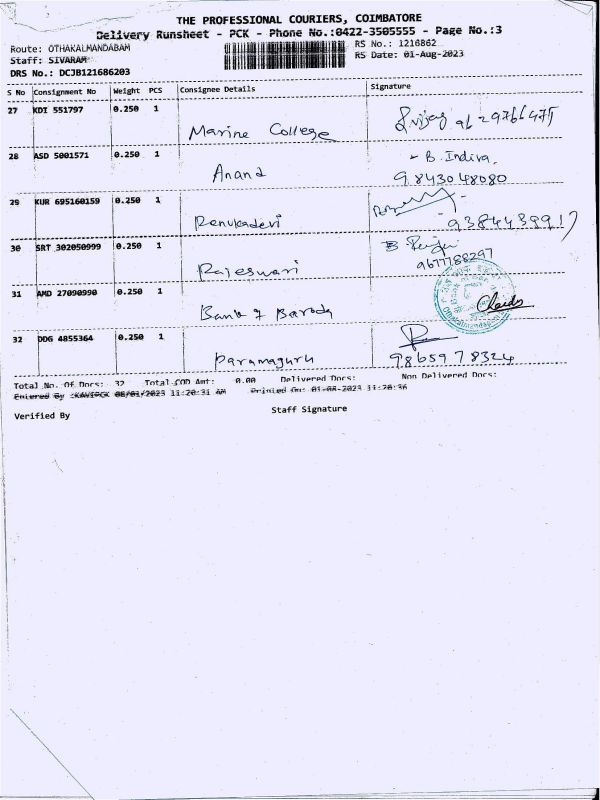 THE PROFESSIONAL COURIERS, COIMBATORE
Delivery Runsheet - PCK - Phone No.:0422-3505555 - Page No.:3
Route: OTHAKALMANDABAM
RS No.: 1216862
Staff: SIVARAM
RS Date: 01-Aug-2023
DRS No.: DCJB121686203
S No Consignment No Weight PCS Consignee Details Signature
27 KDI 551797 0.250 1 Marine College
28 ASD 5001571 0.250 1 Anand - B. Indira,
9843048080
29 KUR 695160159 0.250 1 Renukadevi
30 SRT 302050999 0.250 1 Rajeswari
9677788297
31 AMD 27090990 0.250 1 Bank of Baroda
32 DDG 4855364 0.250 1 Paramaguru
9865978324
Total No. Of Docs: 32 Total COD Amt: 0.00 Delivered Docs: Non Delivered Docs:
Entered By :KAVIPCK 08/01/2023 11:20:31 AM Printed On: 01-08-2023 11:20:36
Verified By
Staff Signature